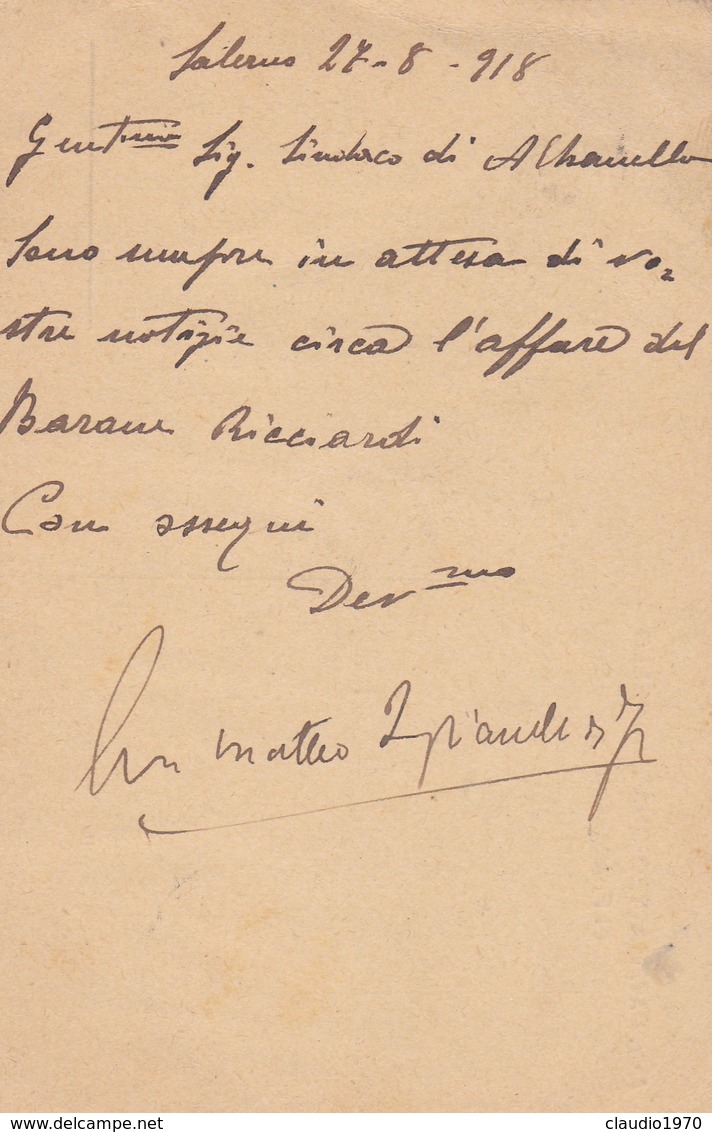 Salerno 27-8-918
Gentmo Sig. Sindaco di Albanella
Sono sempre in attesa di vo=
stre notizie circa l'affare del
Barone Ricciardi
Con ossequi
Devmo
Matteo
www.delcampe.net
claudio1970